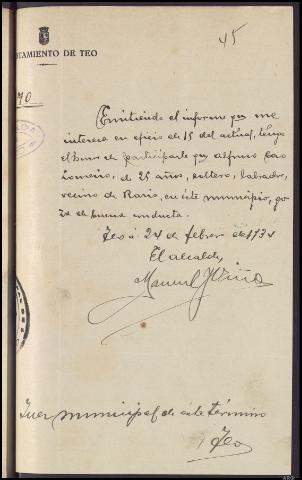 45
TAMIENTO DE TEO
70
Emitiendo el informe que me
interesa en oficio de 15 del actual, tengo
el honor de participarle que Alfonso Cao
de 25 años, soltero, labrador,
vecino de Raris, en éste municipio, go
za de buena conducta.
Teo á 24 de febrero de 193
El alcalde,
Manuel
Juez municipal de éste término
Teo